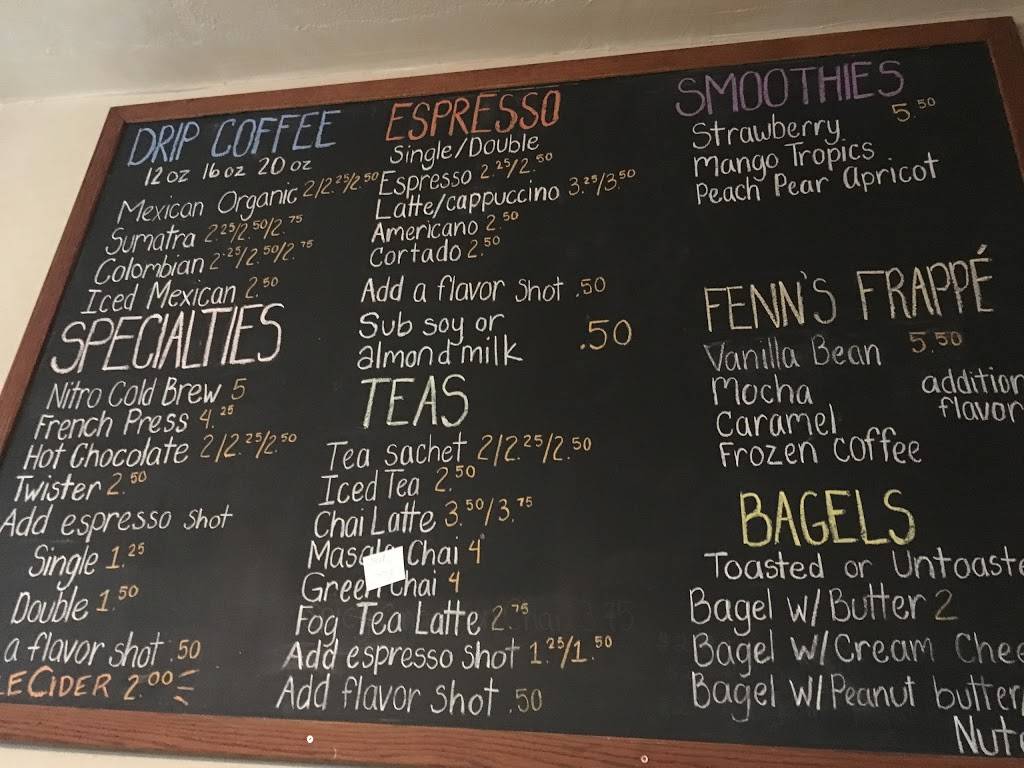 DRIP COFFEE
12 oz 16 oz 20 oz
Mexican Organic 2/2.25/2.50
Sumatra 2.25/2.50/2.75
Colombian 2.25/2.50/2.75
Iced Mexican 2.50
SPECIALTIES
Nitro Cold Brew 5
French Press 4.25
Hot Chocolate 2/2.25/2.50
Twister 2.50
Add espresso shot
Single 1.25
Double 1.50
a flavor shot .50
LE CIDER 2.00
ESPRESSO
Single/Double
Espresso 2.25/2.50
Latte/cappuccino 3.25/3.50
Americano 2.50
Cortado 2.50
Add a flavor shot .50
Sub soy or
almond milk .50
TEAS
Tea sachet 2/2.25/2.50
Iced Tea 2.50
Chai Latte 3.50/3.75
Masala Chai 4
Green Chai 4
Fog Tea Latte 2.75
Add espresso shot 1.25/1.50
Add flavor shot .50
SMOOTHIES
Strawberry 5.50
Mango Tropics
Peach Pear Apricot
FENN'S FRAPPÉ
Vanilla Bean 5.50
Mocha addition
Caramel flavor
Frozen Coffee
BAGELS
Toasted or Untoaste
Bagel w/Butter 2
Bagel w/Cream Chee
Bagel w/Peanut butter/
Nute